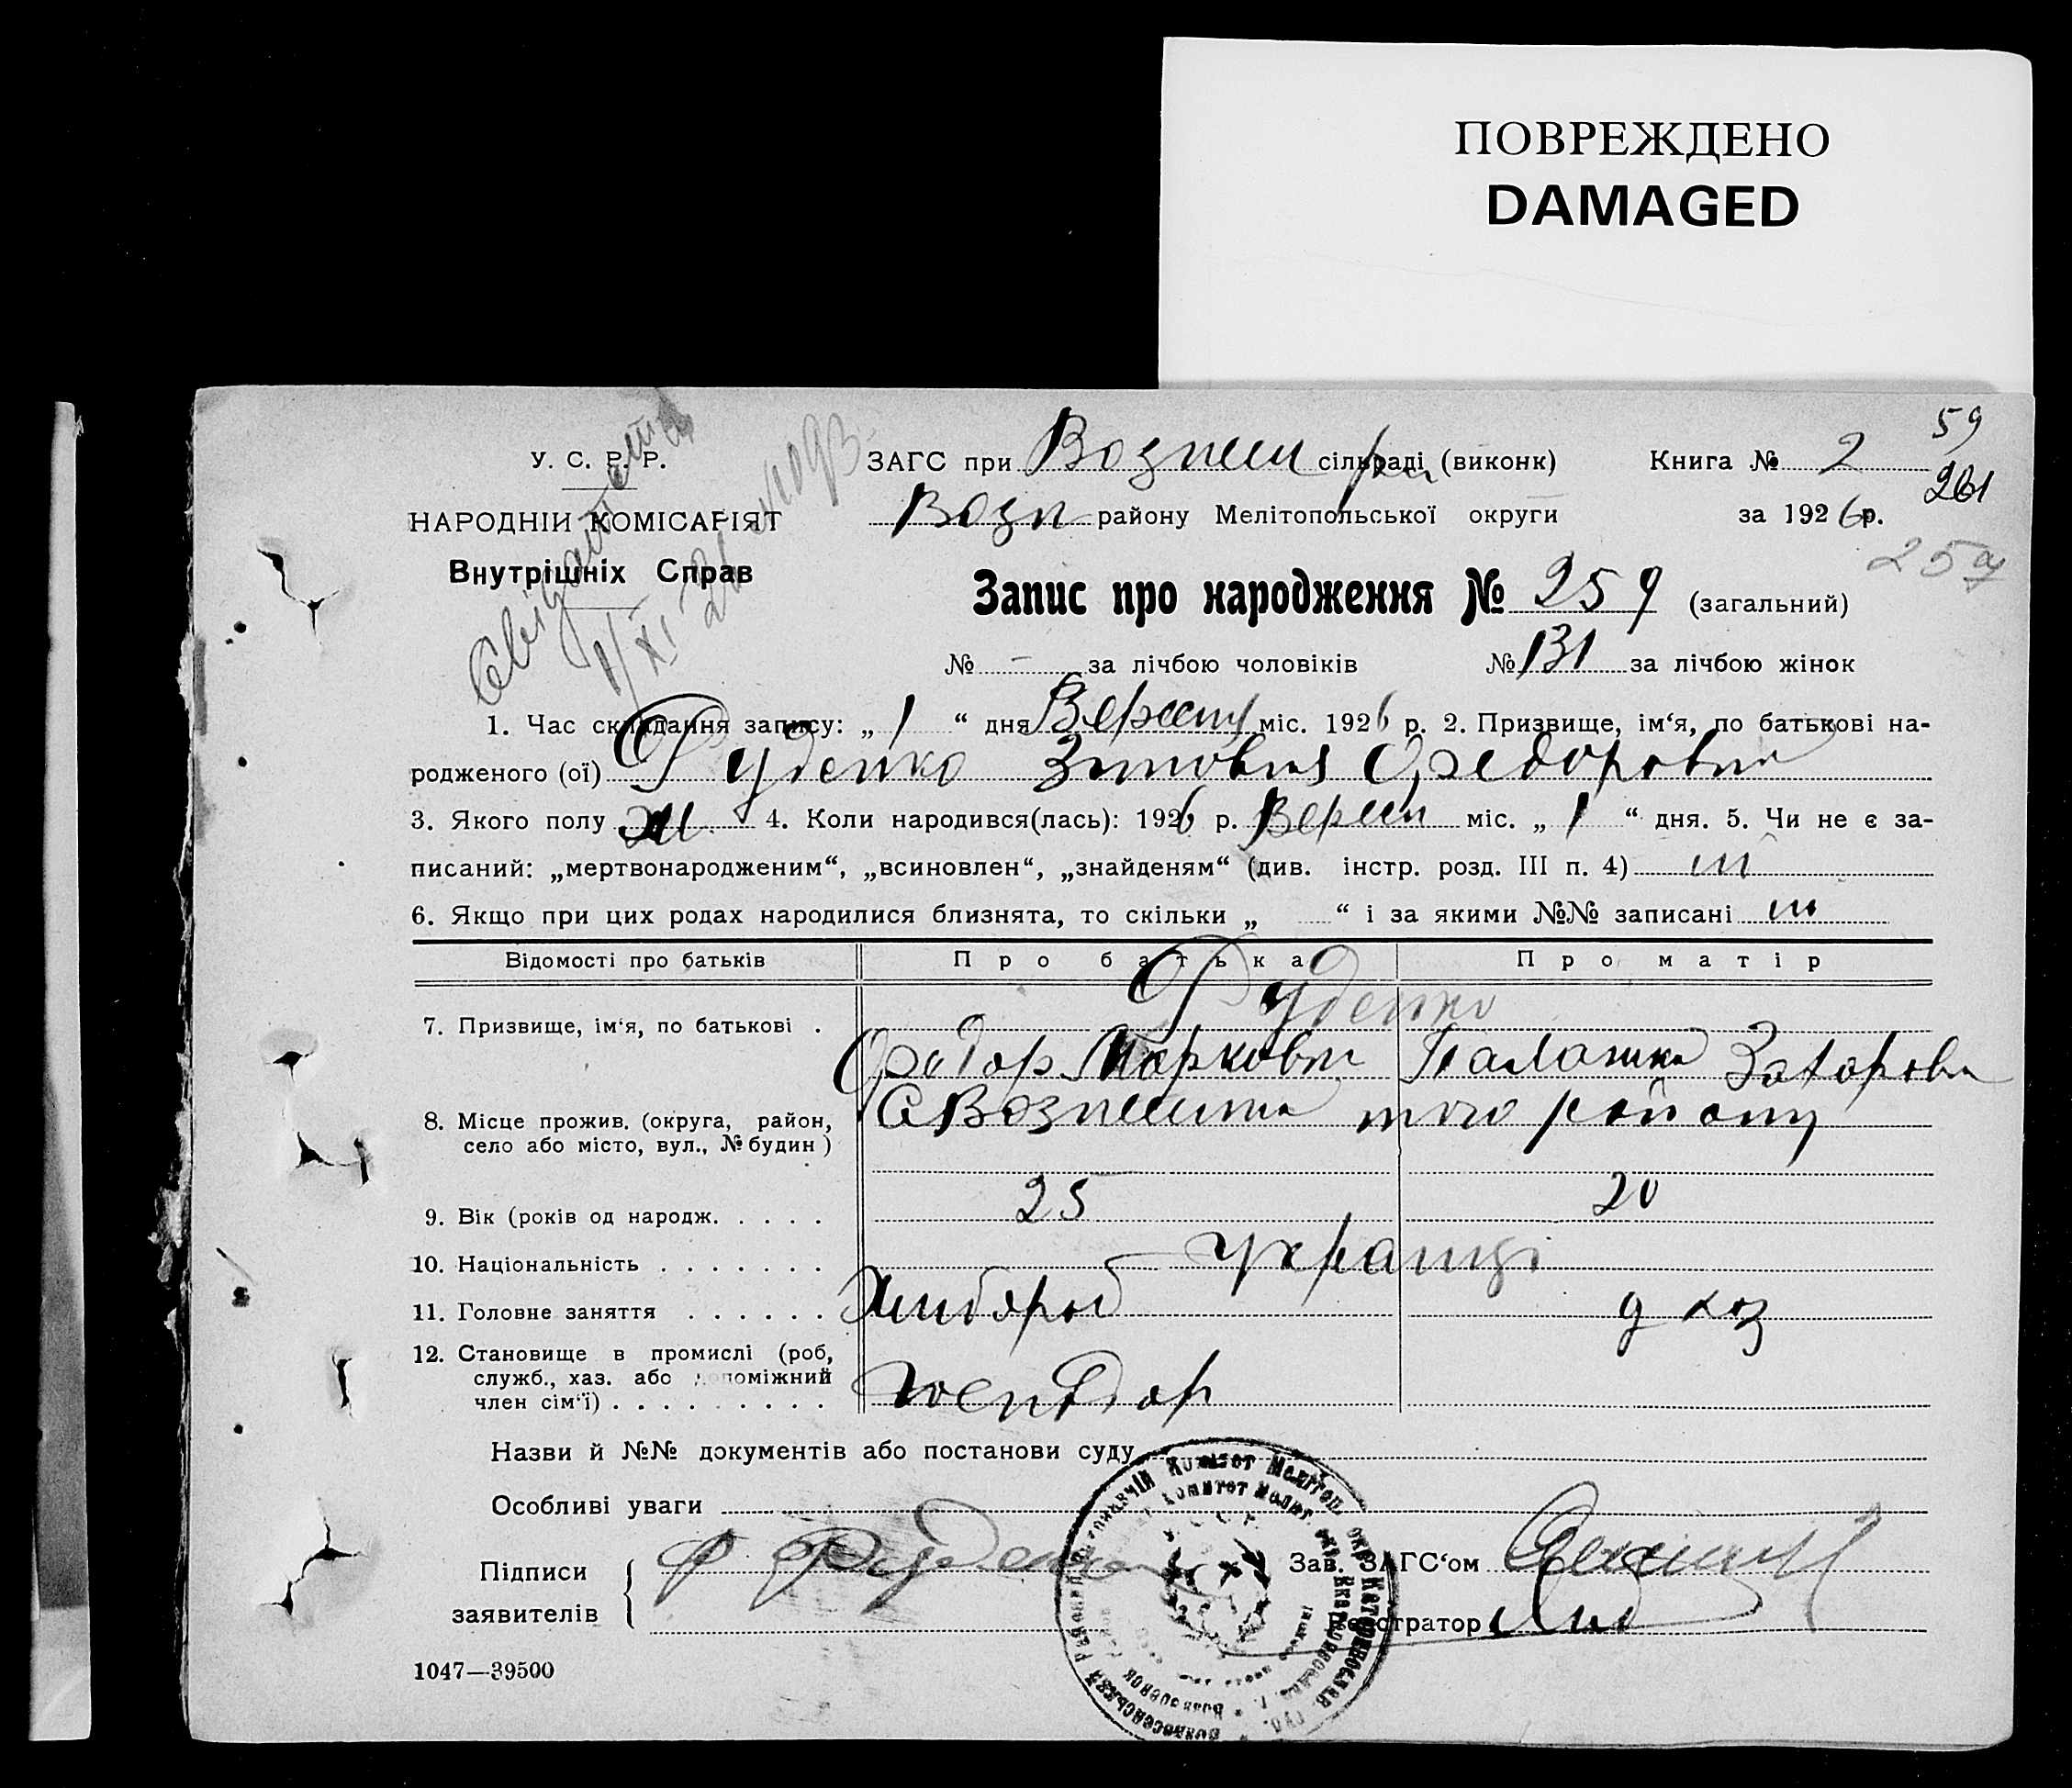 ПОВРЕЖДЕНО
DAMAGED
59
261
259
У. С. Р. Р.
НАРОДНІЙ КОМІСАРІЯТ
Внутрішніх Справ
ЗАГС при Вознесен рай сільраді (виконк) Книга № 2
Возн району Мелітопольської округи за 1926 р.
Запис про народження № 259 (загальний)
№ - за лічбою чоловіків № 131 за лічбою жінок
1. Час складання запису: „ 1 “ дня Вересня міс. 1926 р. 2. Призвище, ім‘я, по батькові на-
родженого (ої) Руденко Зиновия Федоровна
3. Якого полу ж 4. Коли народився(лась): 1926 р. Вересн міс. „ 1 “ дня. 5. Чи не є за-
писаний: „мертвонародженим“, „всиновлен“, „знайденям“ (див. інстр. розд. III п. 4) ні
6. Якщо при цих родах народилися близнята, то скільки „ “ і за якими №№ записані ні
Відомості про батьків Про батька Про матір
Руденко
7. Призвище, ім‘я, по батькові . Федор Маркович Палажка Захаровна
8. Місце прожив. (округа, район, с Вознесенка того району
село або місто, вул., № будин )
9. Вік (років од народж. . . . . 25 20
10. Національність . . . . . . . украінці
11. Головне заняття . . . . . . Хлибороб д хоз
12. Становище в промислі (роб,
служб., хаз. або допоміжний
член сім‘ї) . . . . . . . . .
Назви й №№ документів або постанови суду
Особливі уваги
Підписи Ф Руденко Зав. ЗАГС‘ом
заявителів Реєстратор
1047—39500